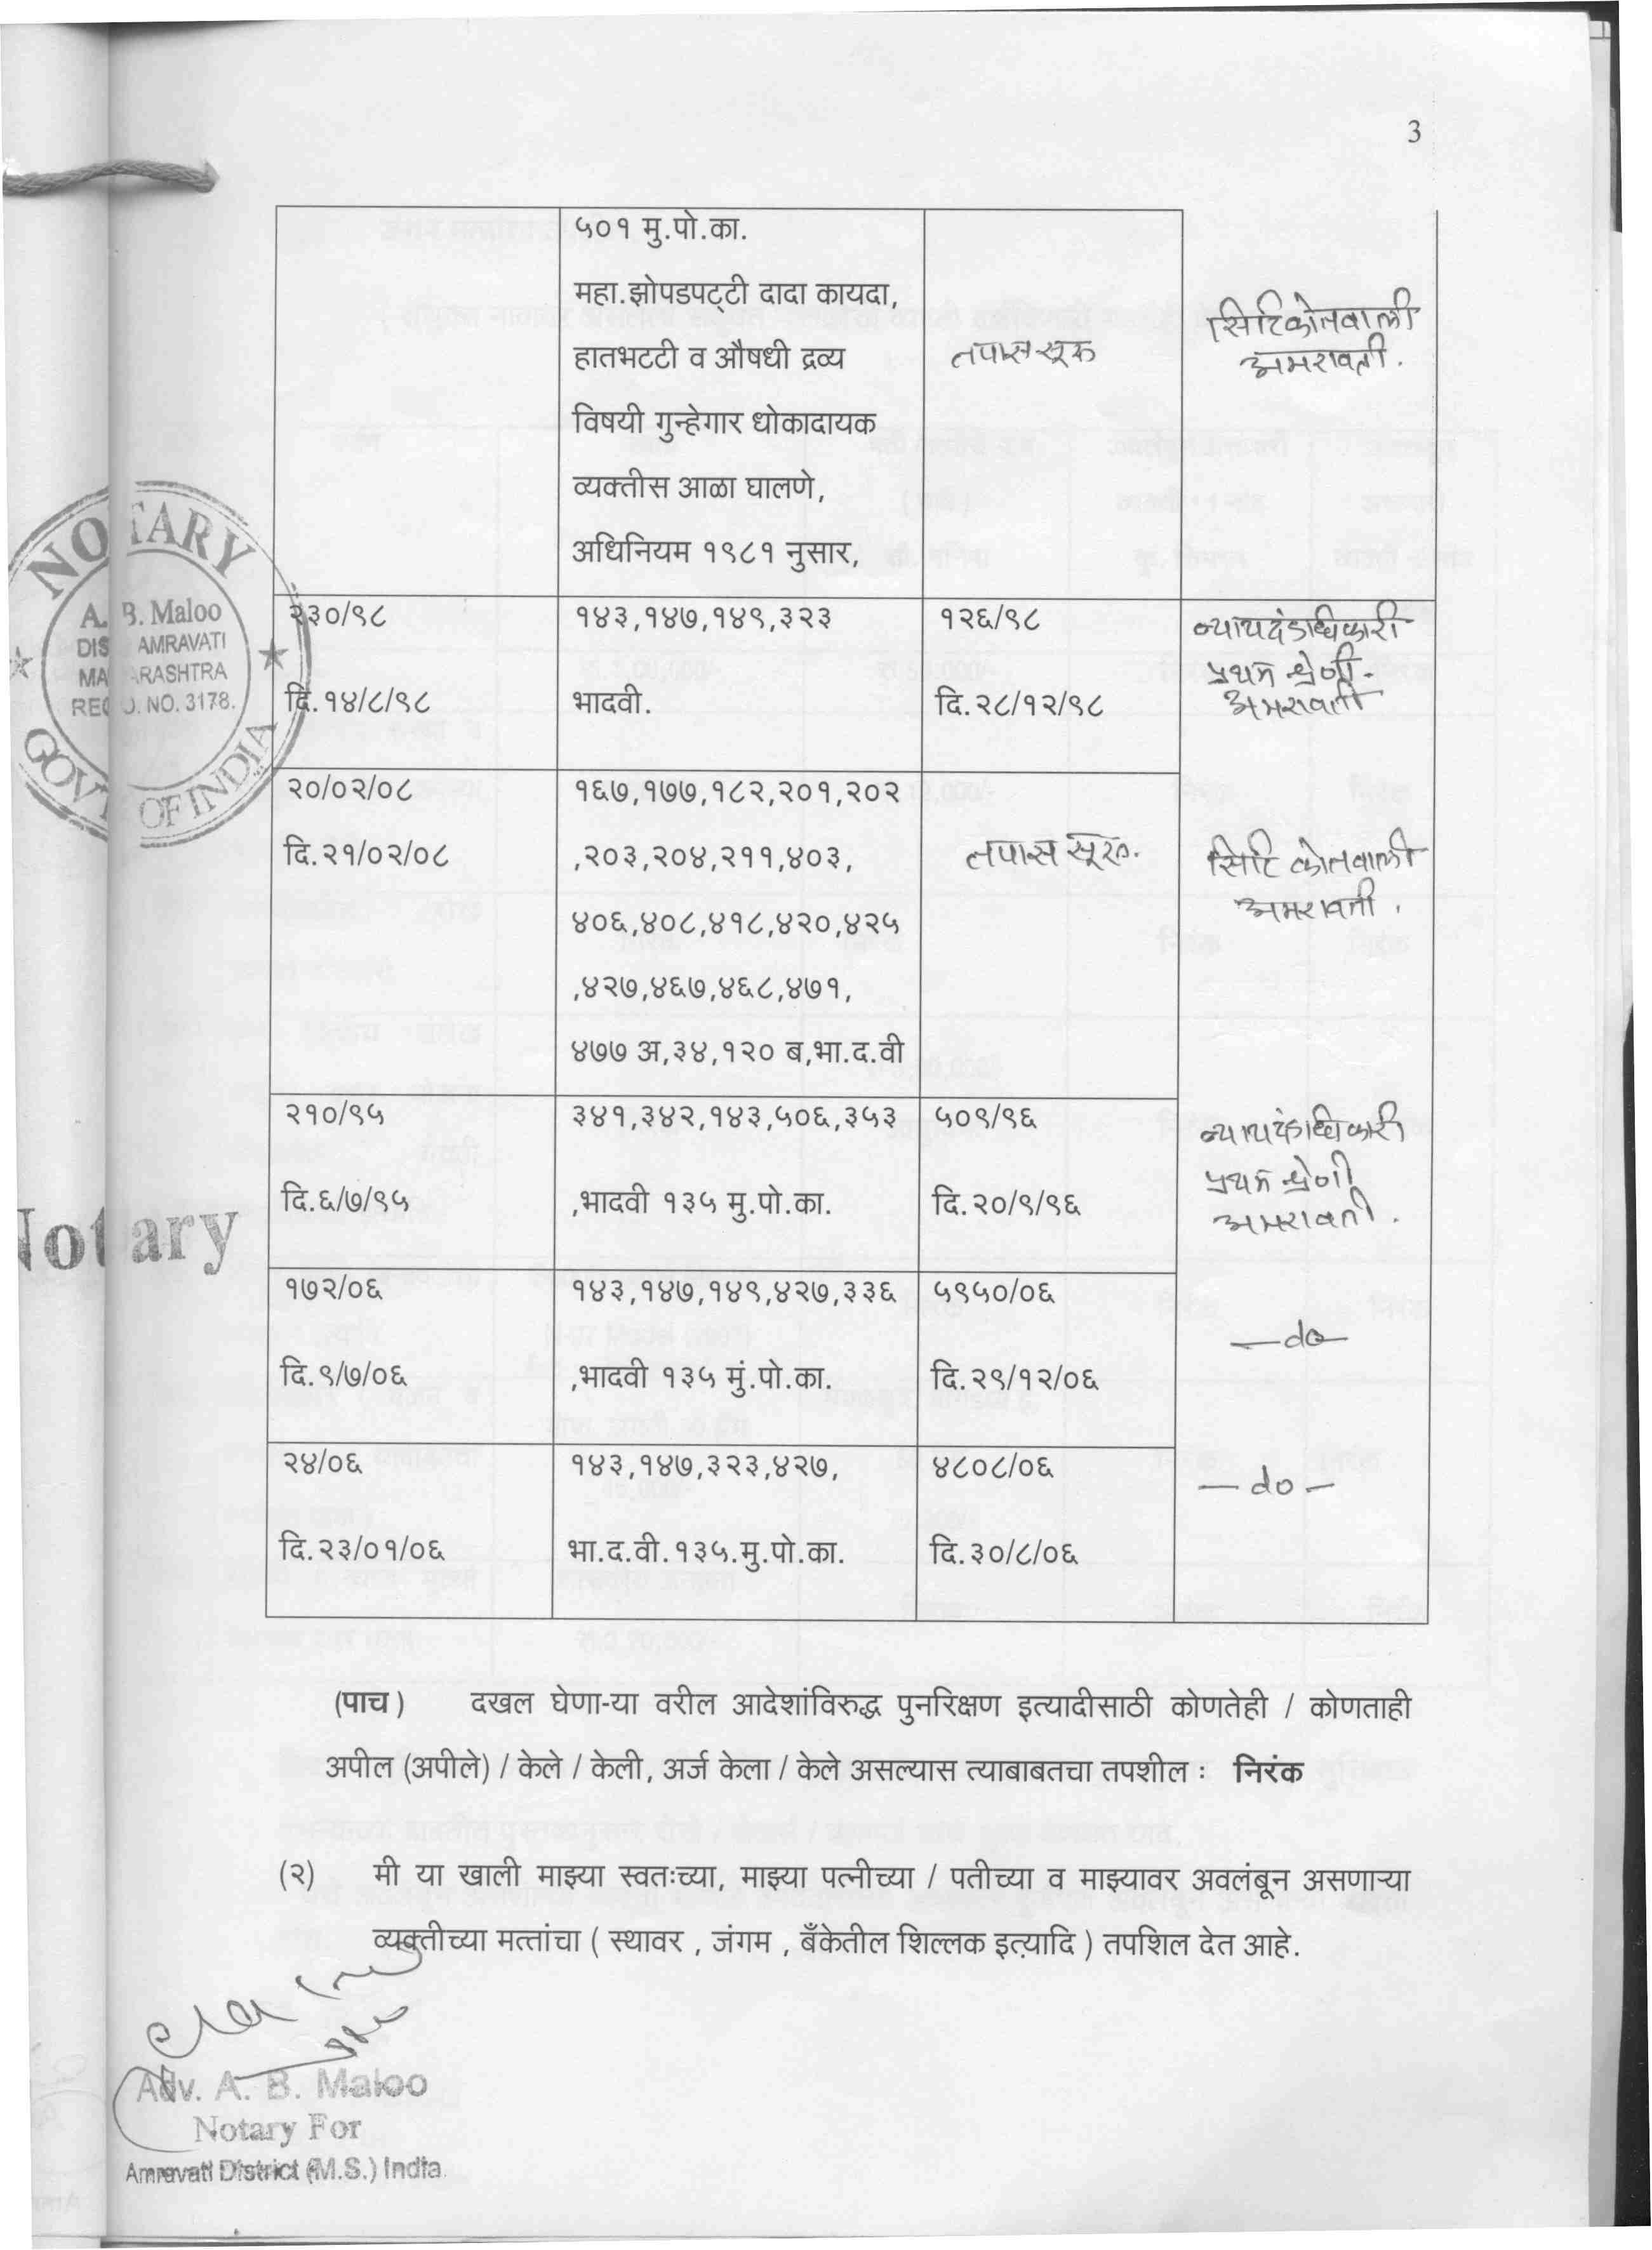 3
५०१ मु.पो.का.
महा.झोपडपट्टी दादा कायदा,
हातभटटी व औषधी द्रव्य
विषयी गुन्हेगार धोकादायक
व्यक्तीस आळा घालणे,
अधिनियम १९८१ नुसार,
तपास सूरू
सिटि कोतवाली
अमरावती.
२३०/९८
दि.१४/८/९८
१४३,१४७,१४९,३२३
भादवी.
१२६/९८
दि.२८/१२/९८
न्यायदंडाधिकारी
प्रथम श्रेणी-
अमरावती
२०/०२/०८
दि.२१/०२/०८
१६७,१७७,१८२,२०१,२०२
,२०३,२०४,२११,४०३,
४०६,४०८,४१८,४२०,४२५
,४२७,४६७,४६८,४७१,
४७७ अ,३४,१२० ब,भा.द.वी
तपास सूरू.
सिटि कोतवाली
अमरावती.
२१०/९५
दि.६/७/९५
३४१,३४२,१४३,५०६,३५३
,भादवी १३५ मु.पो.का.
५०९/९६
दि.२०/९/९६
न्यायदंडाधिकारी
प्रथम श्रेणी
अमरावती.
१७२/०६
दि.९/७/०६
१४३,१४७,१४९,४२७,३३६
,भादवी १३५ मुं.पो.का.
५९५०/०६
दि.२९/१२/०६
—do—
२४/०६
दि.२३/०१/०६
१४३,१४७,३२३,४२७,
भा.द.वी.१३५.मु.पो.का.
४८०८/०६
दि.३०/८/०६
—do—
(पाच) दखल घेणा-या वरील आदेशांविरुद्ध पुनरिक्षण इत्यादीसाठी कोणतेही / कोणताही
अपील (अपीले) / केले / केली, अर्ज केला / केले असल्यास त्याबाबतचा तपशील : निरंक
(२) मी या खाली माझ्या स्वतःच्या, माझ्या पत्नीच्या / पतीच्या व माझ्यावर अवलंबून असणाऱ्या
व्यक्तीच्या मत्तांचा ( स्थावर , जंगम , बँकेतील शिल्लक इत्यादि ) तपशिल देत आहे.
NOTARY
A. B. Maloo
DIST AMRAVATI
MAHARASHTRA
REGD. NO. 3178.
GOVT OF INDIA
Notary
Adv. A. B. Maloo
Notary For
Amravati District (M.S.) India